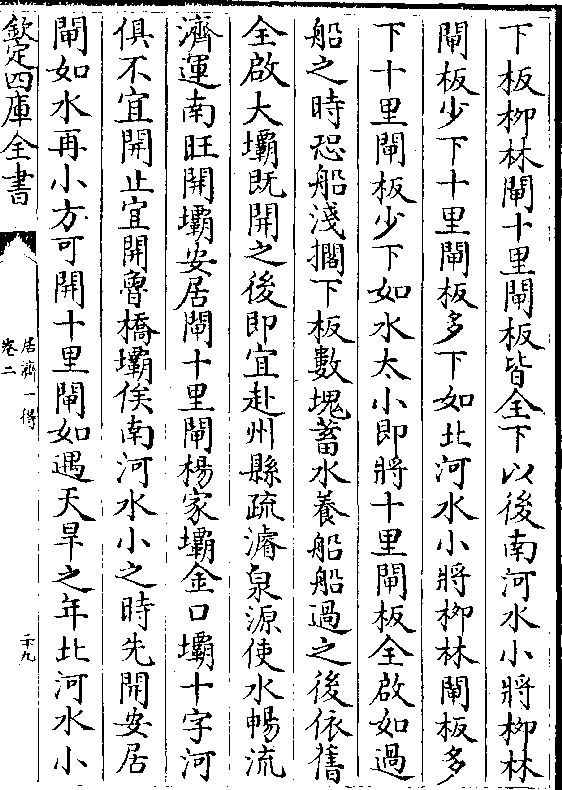 下板柳林閘十里閘板皆全下以後南河水小將柳林
閘板少下十里閘板多下如北河水小將柳林閘板多
下十里閘板少下如水太小即將十里閘板全啟如過
船之時恐船淺擱下板數塊蓄水養船船過之後依舊
全啟大壩既開之後即宜赴州縣疏濬泉源使水暢流
濟運南旺開壩安居閘十里閘楊家壩金口壩十字河
俱不宜開止宜開魯橋壩俟南河水小之時先開安居
閘如水再小方可開十里閘如遇天旱之年北河水小
欽定四庫全書
居濟一得
卷二
二十九